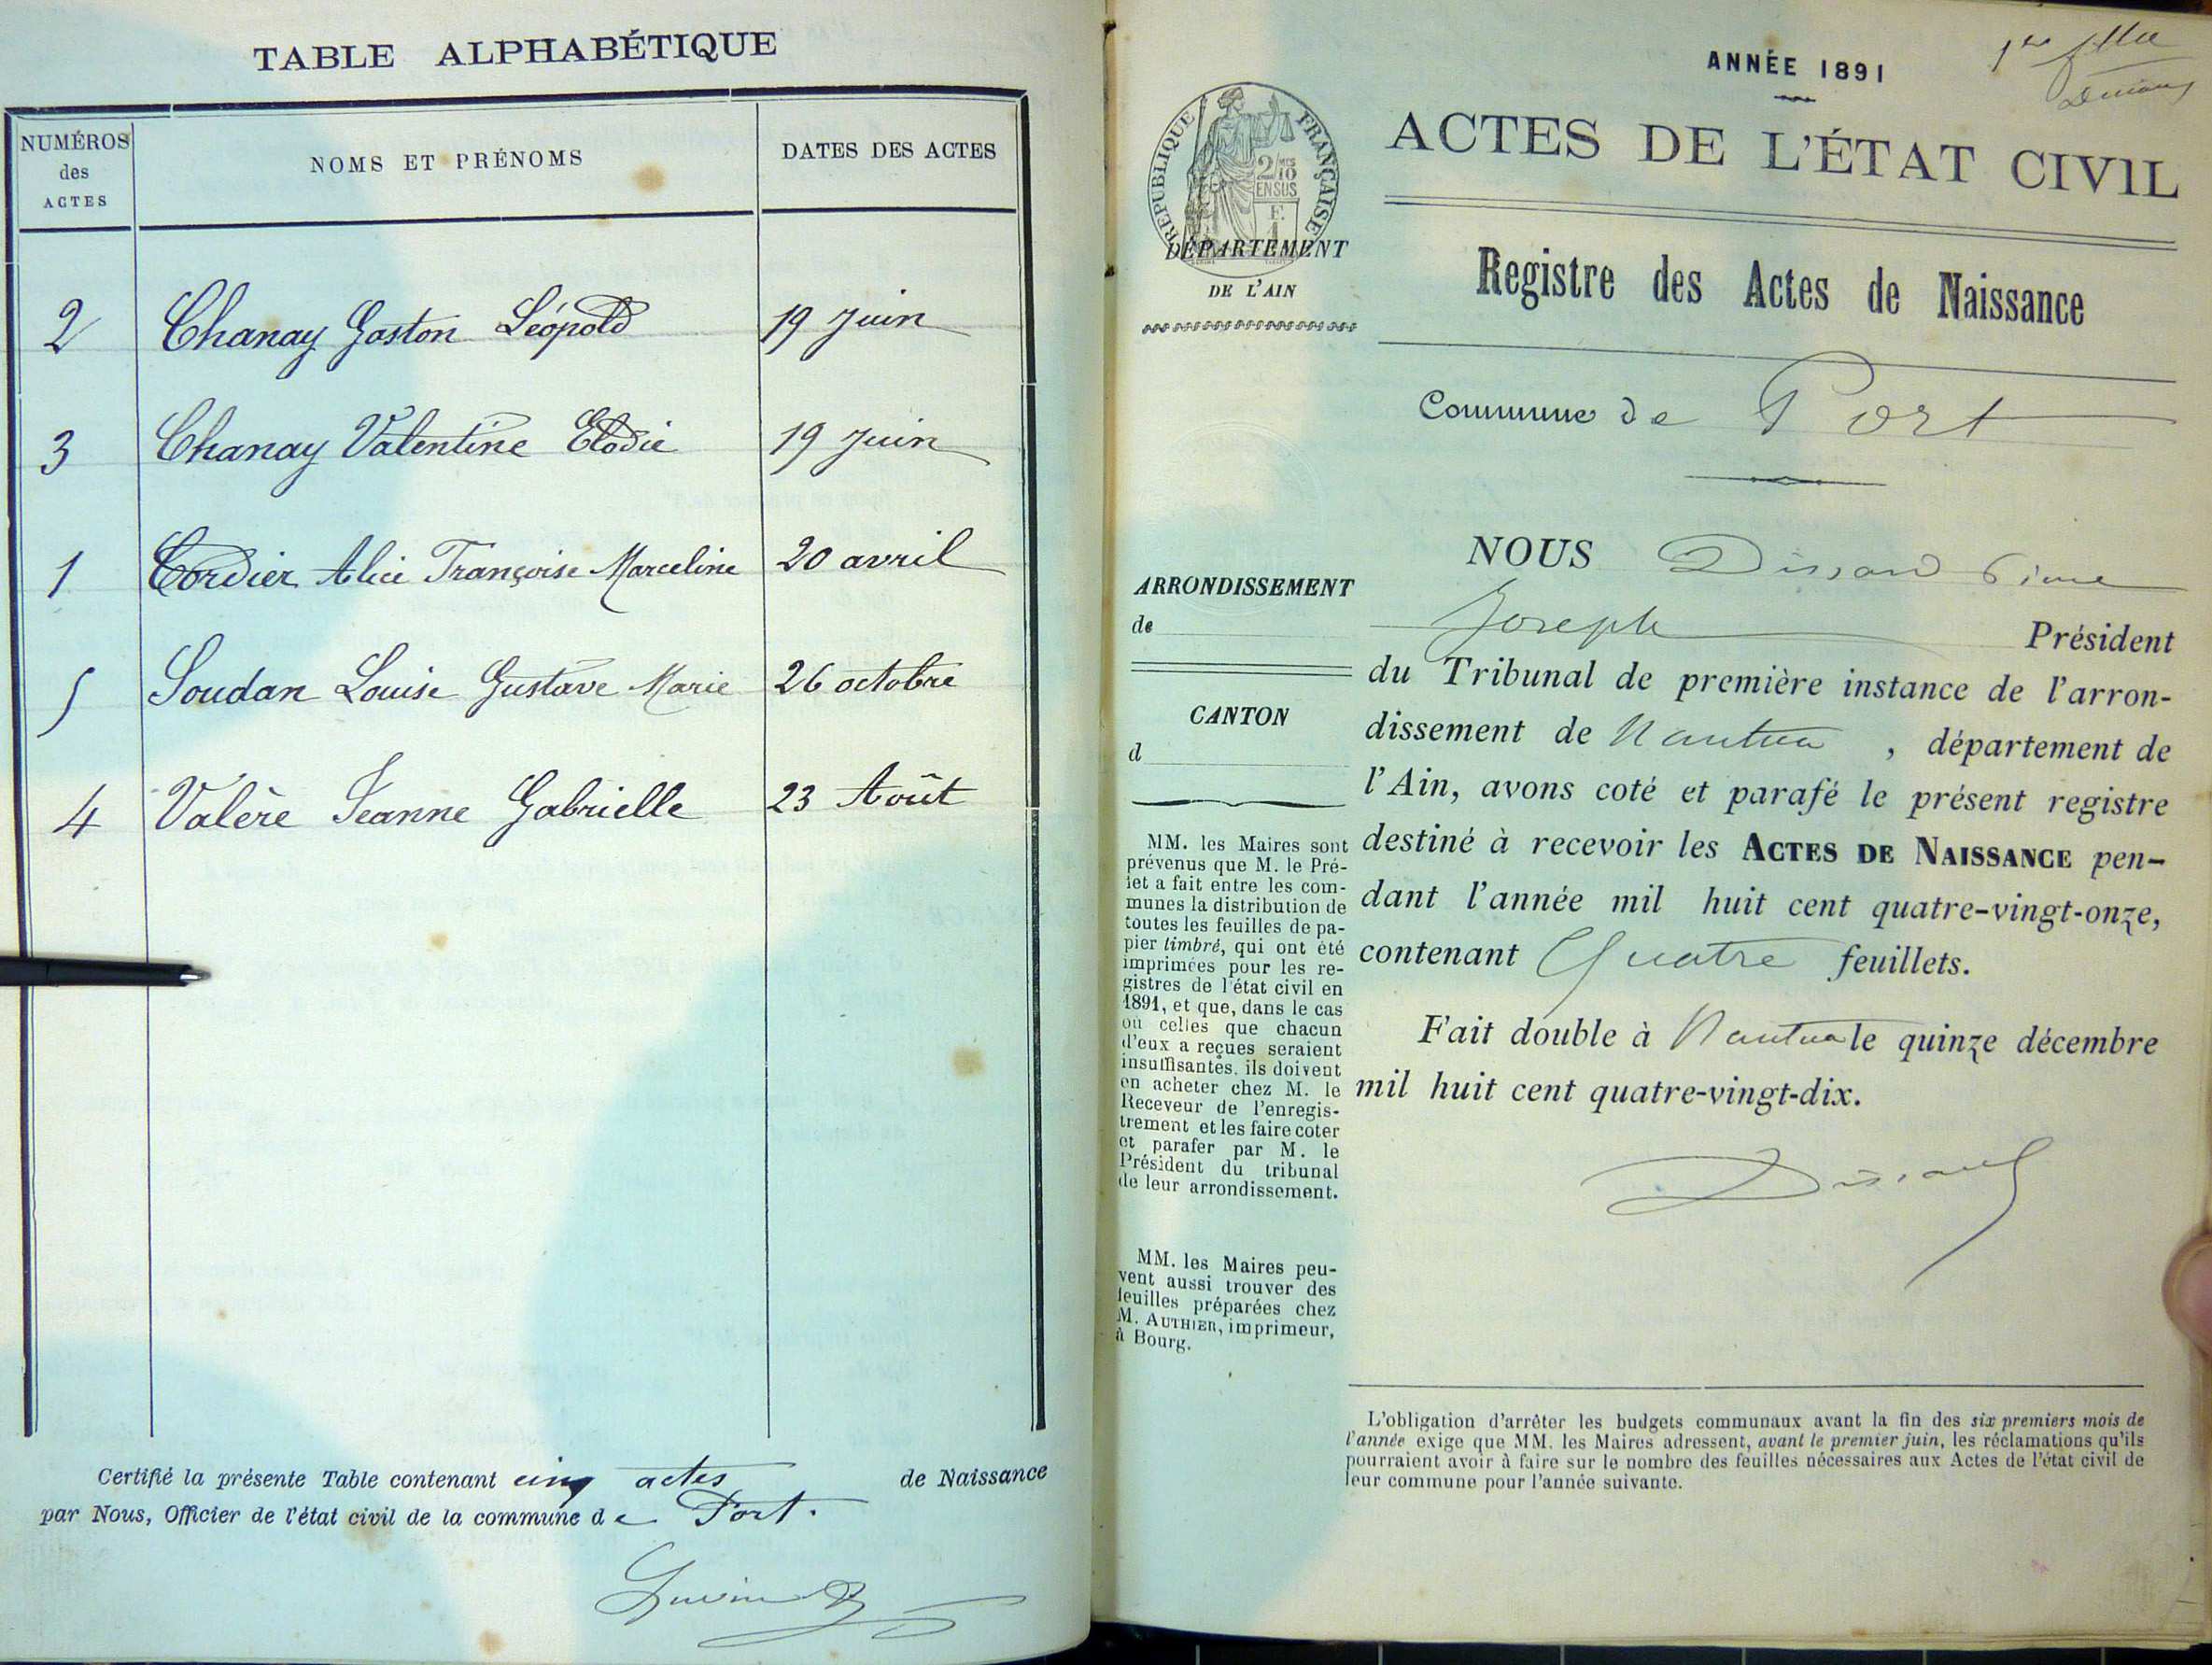 TABLE ALPHABÉTIQUE
NUMÉROS des ACTES
NOMS ET PRÉNOMS
DATES DES ACTES
2 Chanay Gaston Léopold 19 Juin
3 Chanay Valentine Elodie 19 Juin
1 Cordier Alice Françoise Marceline 20 avril
5 Soudan Louise Gustave Marie 26 octobre
4 Valère Jeanne Gabrielle 23 Août
Certifié la présente Table contenant cinq actes de Naissance
par Nous, Officier de l'état civil de la commune de Port.
ANNÉE 1891
ACTES DE L'ÉTAT CIVIL
RÉPUBLIQUE FRANÇAISE
2/10 EN SUS
DÉPARTEMENT
DE L'AIN
Registre des Actes de Naissance
Commune de Port
ARRONDISSEMENT
de
CANTON
d
MM. les Maires sont
prévenus que M. le Pré-
fet a fait entre les com-
munes la distribution de
toutes les feuilles de pa-
pier timbré, qui ont été
imprimées pour les re-
gistres de l'état civil en
1891, et que, dans le cas
où celles que chacun
d'eux a reçues seraient
insuffisantes, ils doivent
en acheter chez M. le
Receveur de l'enregis-
trement et les faire coter
et parafer par M. le
Président du tribunal
de leur arrondissement.
MM. les Maires peu-
vent aussi trouver des
feuilles préparées chez
M. AUTHIER, imprimeur,
à Bourg.
NOUS Dissard
Joseph Président
du Tribunal de première instance de l'arron-
dissement de Nantua, département de
l'Ain, avons coté et parafé le présent registre
destiné à recevoir les ACTES DE NAISSANCE pen-
dant l'année mil huit cent quatre-vingt-onze,
contenant Quatre feuillets.
Fait double à Nantua le quinze décembre
mil huit cent quatre-vingt-dix.
Dissard
L'obligation d'arrêter les budgets communaux avant la fin des six premiers mois de
l'année exige que MM. les Maires adressent, avant le premier juin, les réclamations qu'ils
pourraient avoir à faire sur le nombre des feuilles nécessaires aux Actes de l'état civil de
leur commune pour l'année suivante.